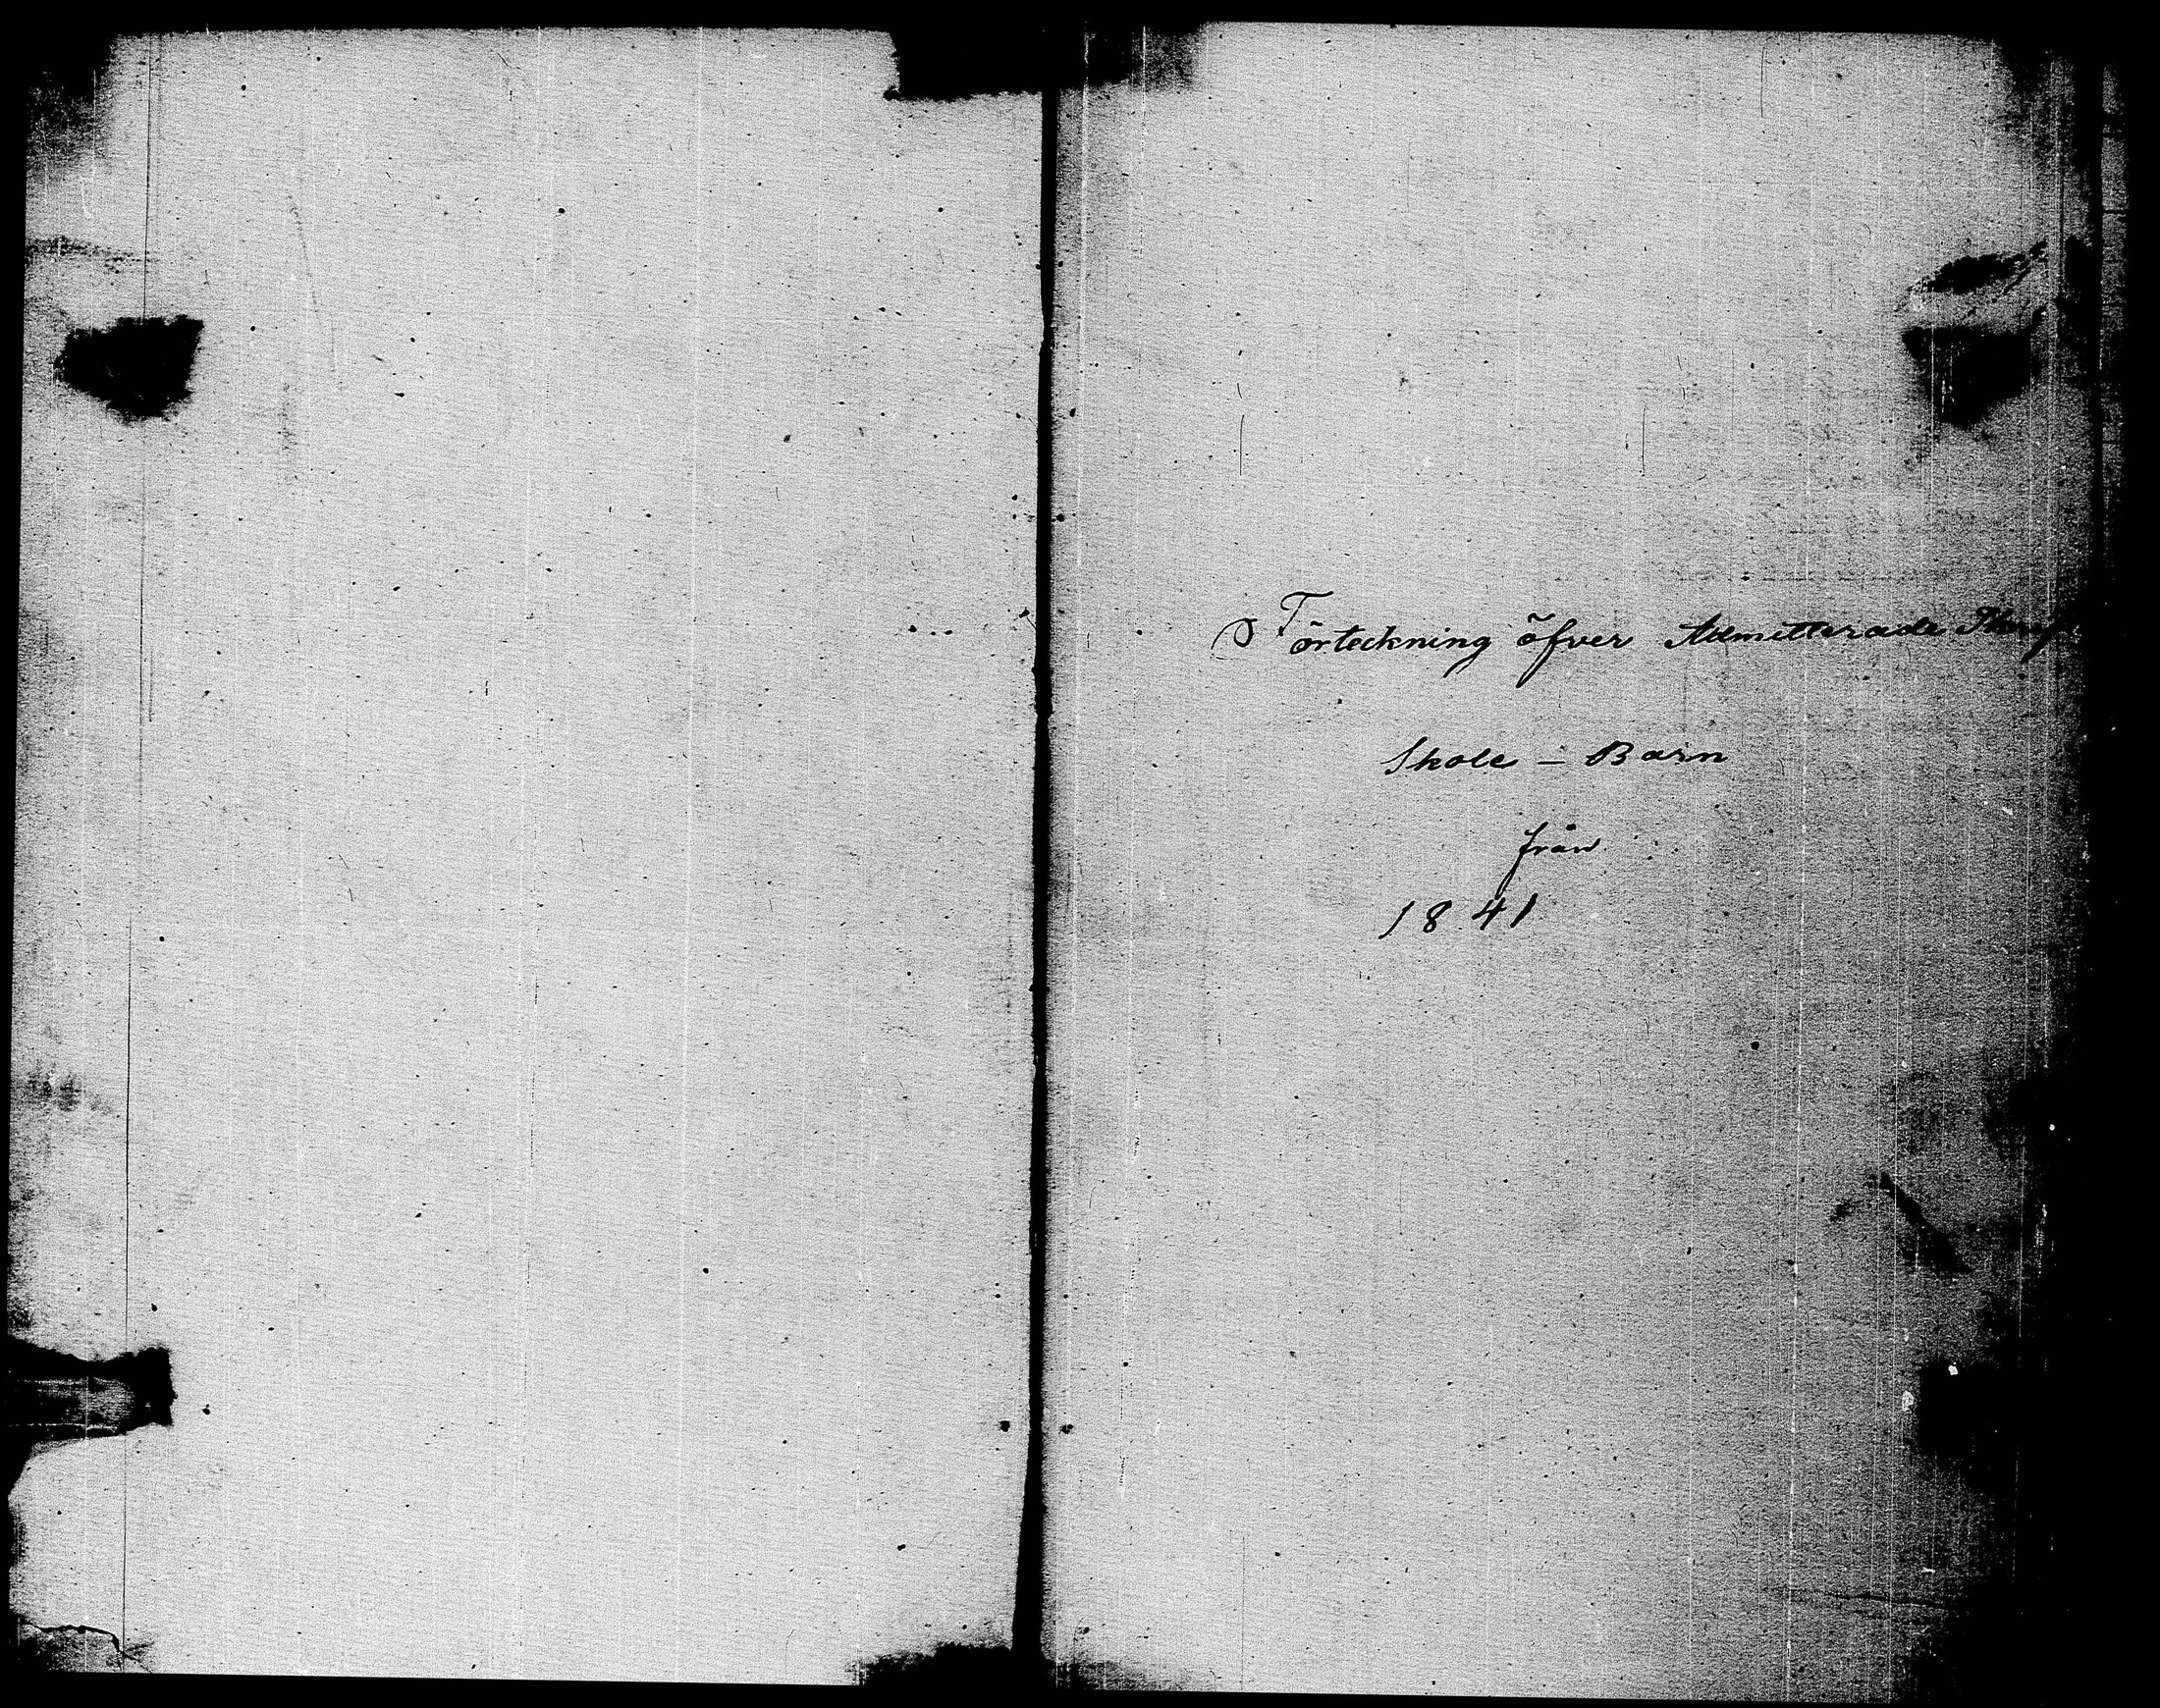 Förteckning öfver Admitterade
Skole - Barn
från
1841